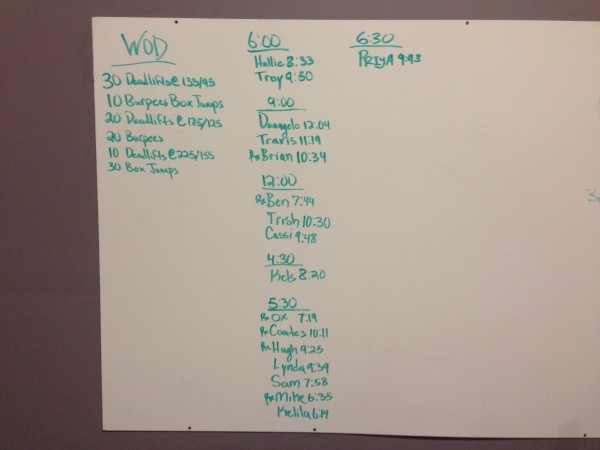 WOD
30 Deadlifts @ 135/95
10 Burpees Box Jumps
20 Deadlifts @
20 Burpees
10 Deadlifts @ 225/155
30 Box Jumps
6:00
Hallie 8:33
Troy 9:50
9:00
Deangelo 12:04
Travis 11:19
Rx Brian 10:34
12:00
Rx Ben 7:44
Trish 10:30
Cassi 9:48
4:30
Kels 8:20
5:30
Rx OX 7:19
Rx Coates 10:11
Rx Hugh 9:25
Lynda 9:39
Sam 7:58
Rx Mike 6:35
Kelila
6:30
PRIYA 9:43